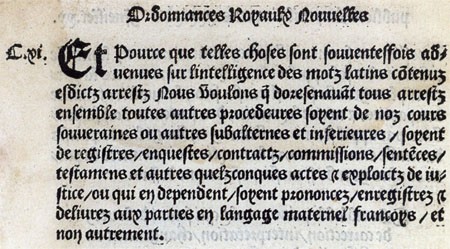 Ordonnances Royaulx Nouvelles
C.xi. Et Pource que telles choses sont souuenteſſois ad
uenues sur lintelligence des motz latins cōtenuz
esdictz arrestz Nous voulons q̄ doresenauāt tous arrestz
ensemble toutes autres procedeures soyent de noz cours
souueraines ou autres subalternes et inferieures / soyent
de registres / enquestes / contractz / commissions / sentēces /
testamens et autres quelzconques actes ⁊ exploictz de iu
stice / ou qui en dependent / soyent prononcez / enregistrez ⁊
deliurez aux parties en langage maternel francoys / et
non autrement.